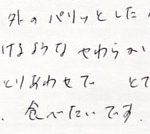 外のパリッとした
けるような やわらか
とりあわせで とて
食べたいです。